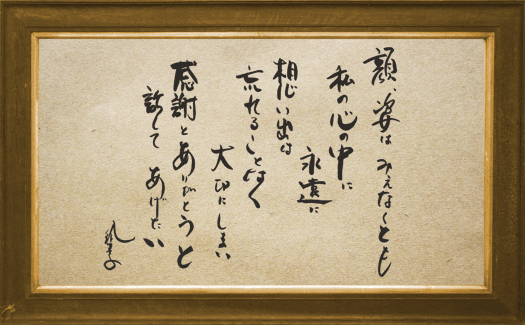 顔、姿は みえなくとも
私の心の中に
永遠に
想い出は
忘れることなく
大切にしまい
感謝とありがとうと
許して あげたい